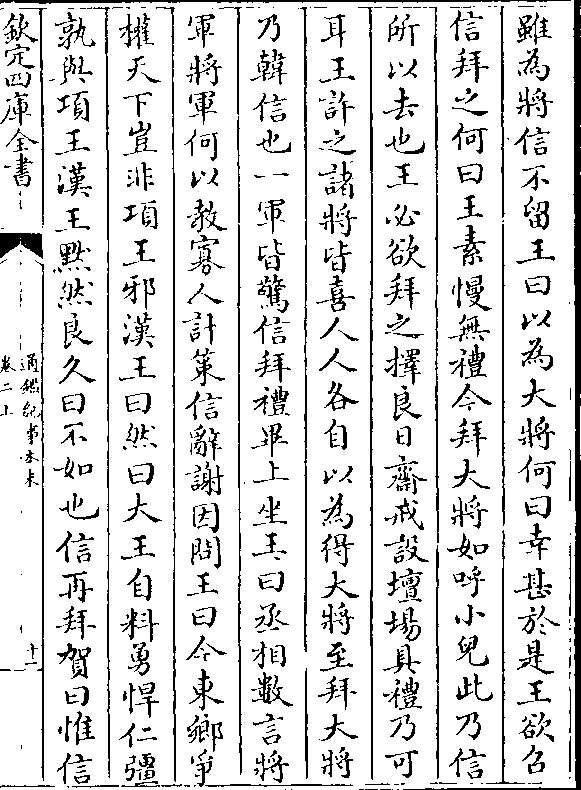 雖為將信不留王曰以為大將何曰幸甚於是王欲召
信拜之何曰王素慢無禮今拜大將如呼小兒此乃信
所以去也王必欲拜之擇良日齋戒設壇場具禮乃可
耳王許之諸將皆喜人人各自以為得大將至拜大將
乃韓信也一軍皆驚信拜禮畢上坐王曰丞相數言將
軍將軍何以教寡人計策信辭謝因問王曰今東鄉爭
權天下豈非項王邪漢王曰然曰大王自料勇悍仁彊
孰與項王漢王黙然良久曰不如也信再拜賀曰惟信
欽定四庫全書
通鑑紀事本末
卷二上
十二